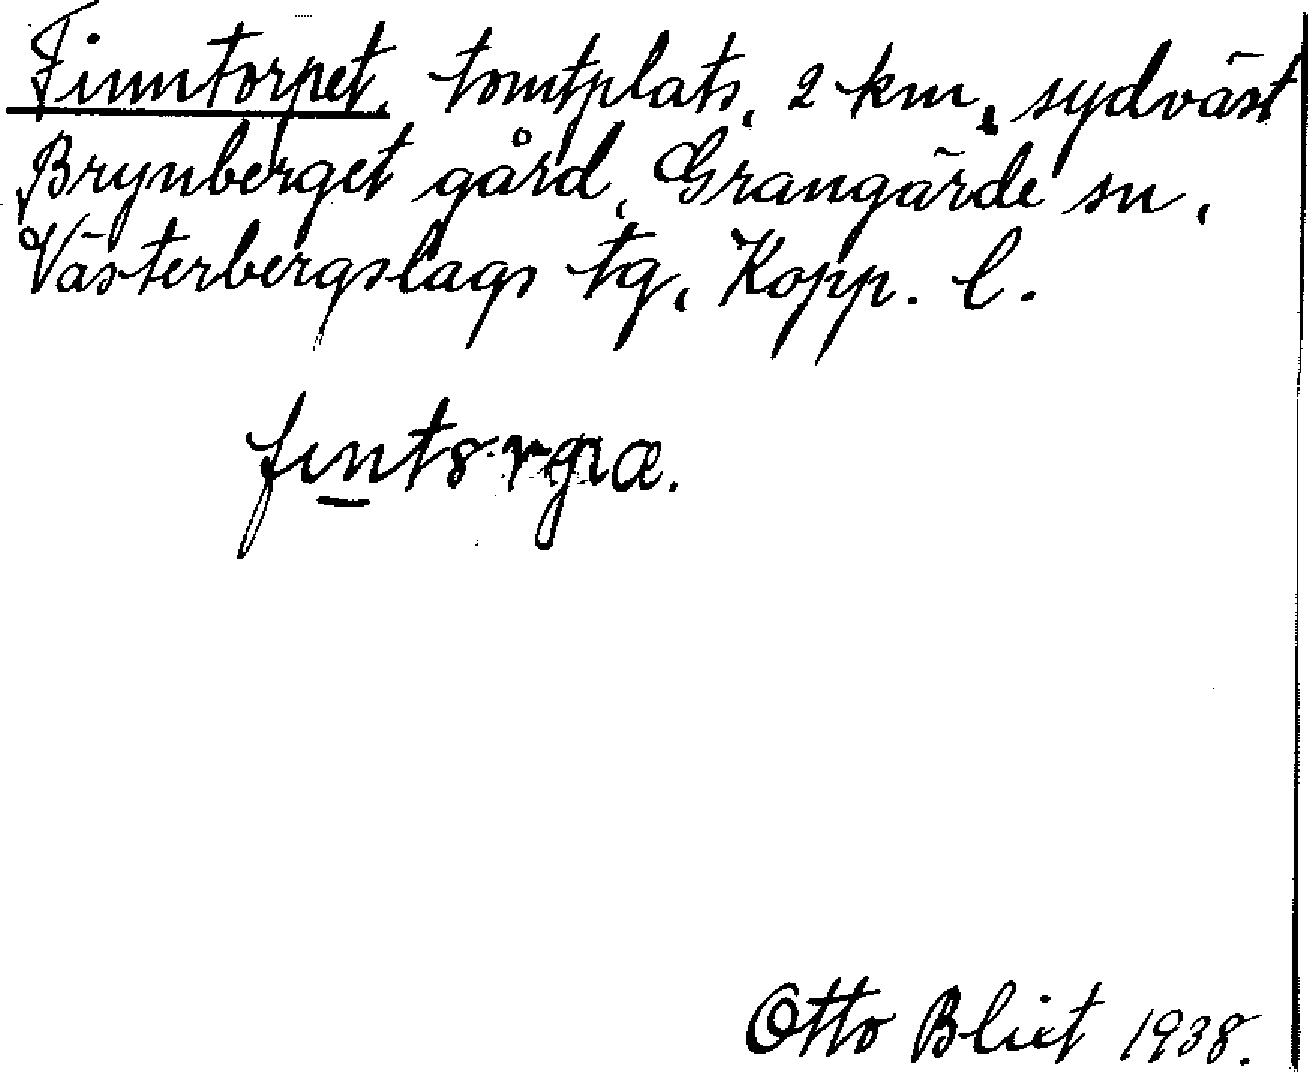 Finntorpet, tomtplats, 2 km, sydväst
Brynberget gård, Grangärde sn,
Västerbergslags tg, Kopp. l.
Otto Blixt 1938.